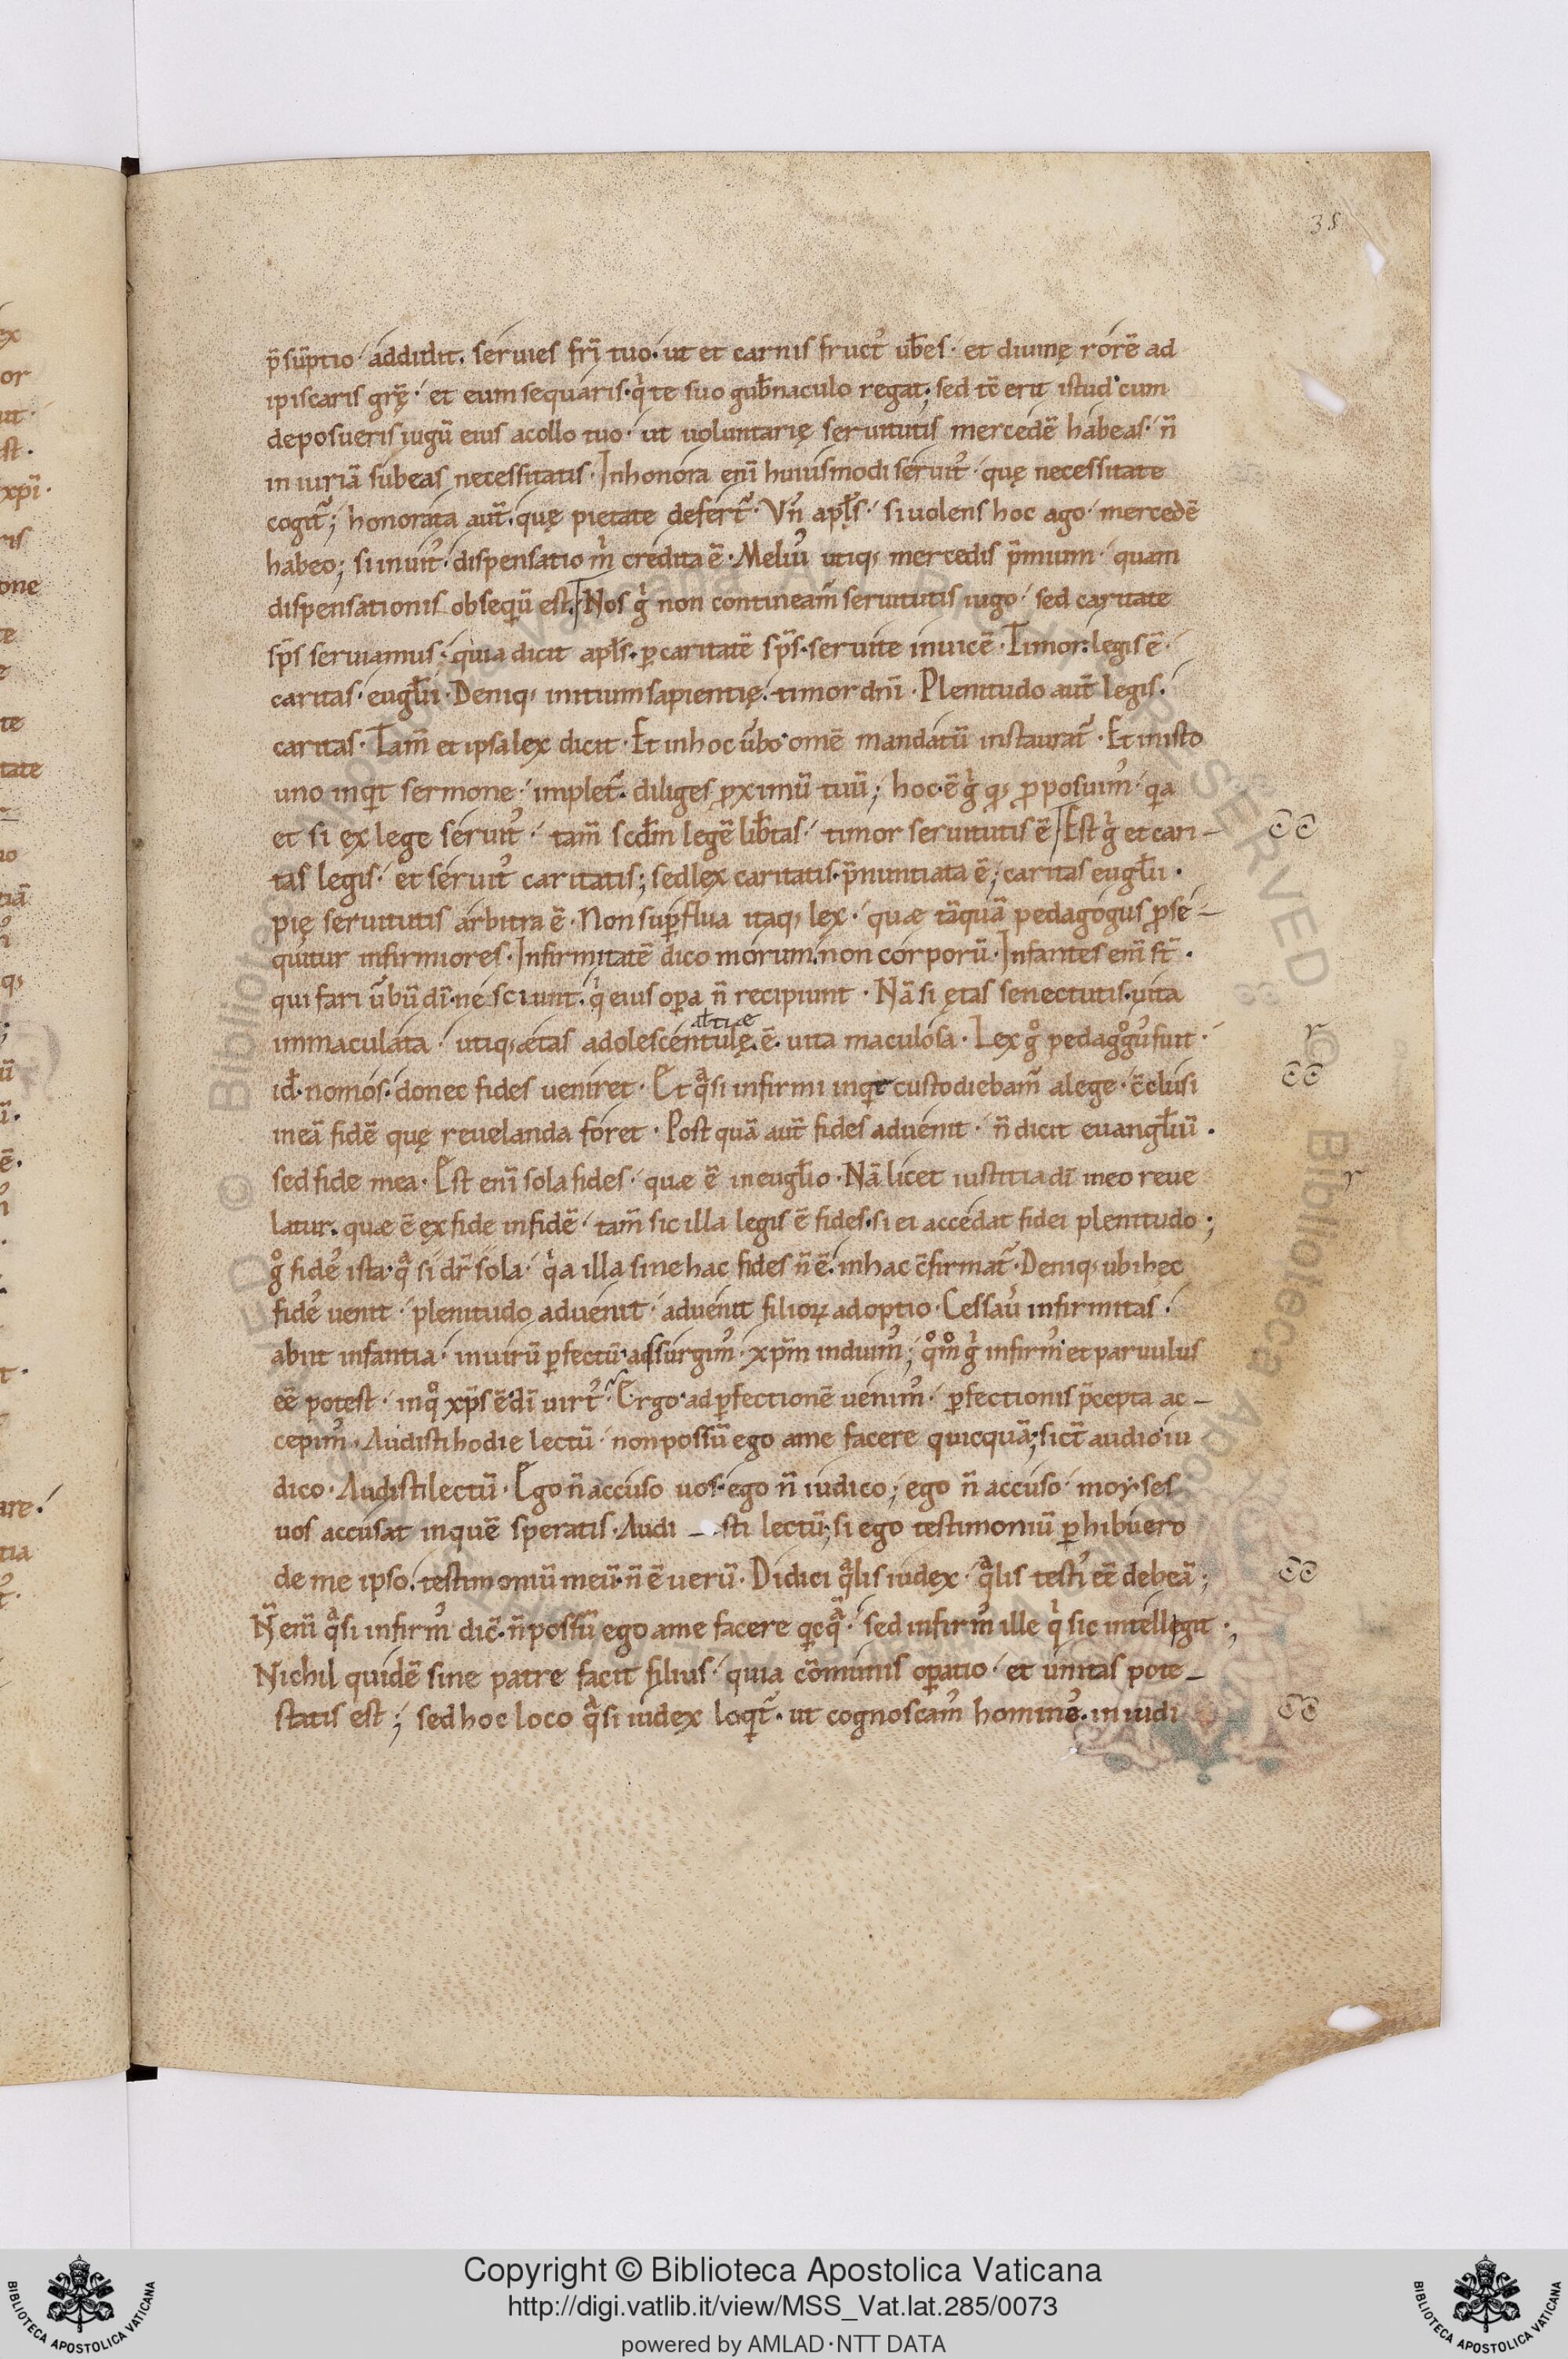 38
p̄sūptio· addidit. seruies frī tuo· ut et carnis fruct᾽ ub̄es· et diuinę rorē ad
ipiscaris grę̄· et eum sequaris· q̍ te suo gub̄naculo regat; sed tc̄ erit istud cum
deposueris iugū eius acollo tuo· ut uoluntarię seruitutis mercedē habeas· n̄
iniuriā subeas necessitatis· Inhonora enī huiusmodi seruit᾽· quę necessitate
cogit᷒; honorata aut̄· quę pietate defert᷒· Vn̄ apłs· si uolens hoc ago· mercedē
habeo; si inuit᾽· dispensatio m̍ credita ē· Meliu᾽ utiq; mercedis p̄mium· quam
dispensationis obseq̄ū est. Nos g̍ non contineam᾽ seruitutis iugo· sed caritate
sp̄s seruiamus· quia dicit apłs· ꝑ caritatē sp̄s· seruite inuicē· Timor legis ē·
caritas· eugłii· Deniq; initium sapientię· timor dn̄i· Plenitudo aut̄ legis·
caritas· Tam̄ et ipsa lex dicit· Et inhoc ūbo omē mandatū instaurat᷒· Et inisto
uno inqt sermone· implet᷒· diliges ꝓximū tuū; hoc ē g̍ q; ꝓposuim᾽· qa
et si ex lege seruit᾽· tam̄ scdm̄ legē lib̄tas· timor seruitutis ē Est g̍ et cari-
tas legis· et seruit᾽ caritatis; sed lex caritatis· p̄nuntiata ē; caritas eugłii·
pię seruitutis arbitra ē· Non suꝑflua itaq; lex· quæ tāquā pedagogus ꝓse-
quitur infirmiores· Infirmitatē dico morum· non corporū· Infantes enī st̄·
qui fari ūbū dī· nesciunt· q̍ eius oꝑa n̄ recipiunt· Nā si ętas senectutis· uita
ał tiæ
immaculata· utiq; ætas adolescentulę· ē· uita maculosa· Lex g° pedagogu᾽ fuit·
id· nomos· donec fides ueniret· Et qͣsi infirmi inqt custodiebam᾽ alege· c̄clusi
ineā fidē quę reuelanda foret· Post quā aut̄ fides aduenit· n̄ dicit euangłiū·
sed fide mea· Est enī sola fides· quæ ē ineugłio· Nā licet iustitia dī ineo reue
latur· quæ ē ex fide infidē· tam̄ sic illa legis ē fides· si ei accedat fidei plenitudo;
g° fide᾽ ista· qͣ si dr̄ sola· q̍a illa sine hac fides n̄ ē· inhac c̄firmat᷒· Deniq; ubi hęc
fide᾽ uenit· plenitudo aduenit· aduenit filioꝝ adoptio· Cessau᾽ infirmitas·
abiit infantia· inuirū ꝑfectū· adsurgim᾽· xp̄m induim᾽; q°m° g̍ infirm᾽ et paruulus
ēē potest· inq° xp̄s ē dī uirt᾽· Ergo· ad ꝑfectionē uenim᾽· ꝑfectionis p̄cepta ac-
cepim᾽· Audisti hodie lectū· non possū ego ame facere quicquā; sict̄ audio iu
dico· Audisti lectū· Ego n̄ accuso uos· ego n̄ iudico; ego n̄ accuso· moyses
uos accusat inquē speratis· Audi - sti lectū; si ego testimoniū ꝑhibuero
de me ipso· testimoniū meū· n̄ ē uerū· Didici qͣlis iudex· qͣlis testi᾽ ēē debeā;
N̄ enī qͣsi infirm᾽ dic̄· n̄ possū ego ame facere qcqͣ̄· sed infirm᾽ ille q̍ sic intellegit·;
Nichil quidē sine patre facit filius· quia cōmunis oꝑatio· et unitas pote-
statis est; sed hoc loco qͣsi iudex loqt᷒· ut cognoscam᾽ homine᾽· in iudi
r
r
Copyright © Biblioteca Apostolica Vaticana
http://digi.vatlib.it/view/MSS_Vat.lat.285/0073
powered by AMLAD·NTT DATA